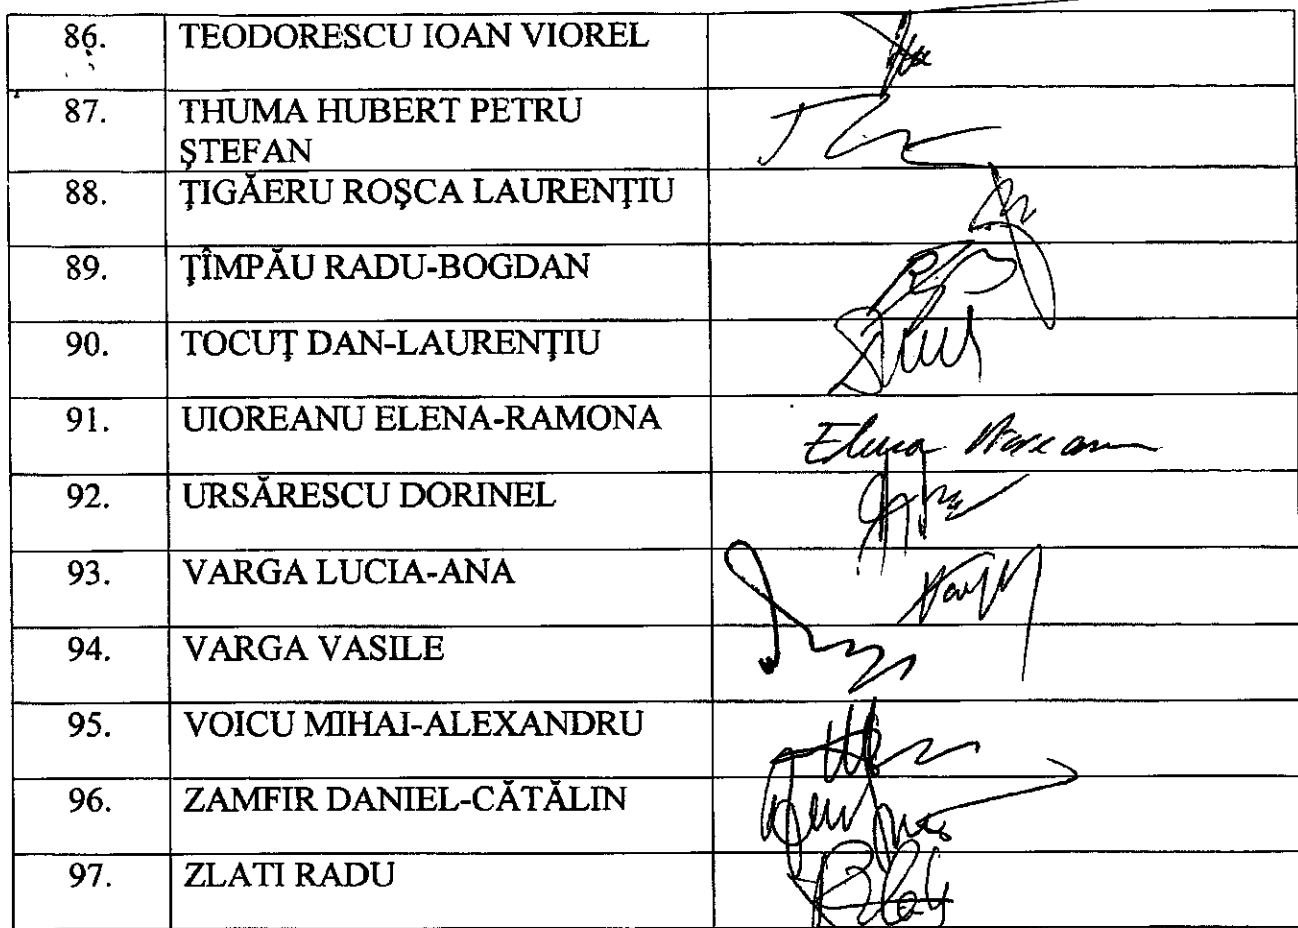 86. TEODORESCU IOAN VIOREL
87. THUMA HUBERT PETRU
ŞTEFAN
88. ŢIGĂERU ROŞCA LAURENŢIU
89. ŢÎMPĂU RADU-BOGDAN
90. TOCUŢ DAN-LAURENŢIU
91. UIOREANU ELENA-RAMONA
Elena
92. URSĂRESCU DORINEL
93. VARGA LUCIA-ANA
94. VARGA VASILE
95. VOICU MIHAI-ALEXANDRU
96. ZAMFIR DANIEL-CĂTĂLIN
97. ZLATI RADU